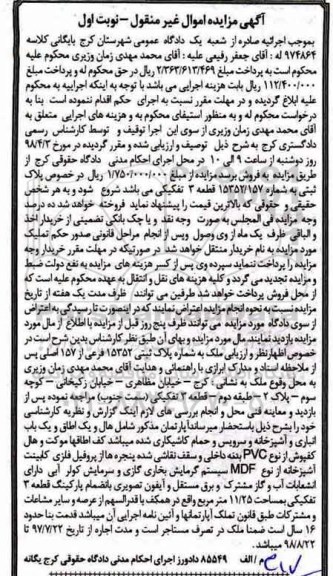 آگهی مزایده اموال غیر منقول – نوبت اول
بموجب اجرائیه صادره از شعبه یک دادگاه عمومی شهرستان کرج بایگانی کلاسه
۹۷۴۸۶۴ له: آقای جعفر رفیعی علیه: آقای محمد مهدی زمان وزیری محکوم علیه
محکوم است به پرداخت مبلغ ۲/۳۶۳/۶۱۳/۴۶۹ ریال در حق محکوم له و پرداخت مبلغ
۱۱۲/۴۰۰/۰۰۰ ریال بابت هزینه اجرایی می باشد با توجه به اینکه اجراییه به محکوم
علیه ابلاغ گردیده و در مهلت مقرر نسبت به اجرای حکم اقدام ننموده است بنا به
درخواست محکوم له و به منظور استیفای محکوم به و هزینه های اجرایی متعلق به
آقای محمد مهدی زمان وزیری از سوی این اجرا توقیف و توسط کارشناس رسمی
دادگستری کرج به شرح ذیل توصیف و ارزیابی شده و مقرر گردیده در مورخ ۹۸/۴/۳
روز دوشنبه از ساعت ۹ الی ۱۰ در محل اجرای احکام مدنی دادگاه حقوقی کرج از
طریق مزایده به فروش برسد مزایده از مبلغ ۱/۷۵۰/۰۰۰/۰۰۰ ریال در خصوص پلاک
ثبتی به شماره ۱۵۳۵۲/۱۵۷ قطعه ۳ تفکیکی می باشد شروع شود و به هر شخص
حقیقی و حقوقی که بالاترین قیمت را پیشنهاد نماید فروخته خواهد شد ده درصد
وجه مزایده فی المجلس به صورت وجه نقد و یا چک بانکی تضمینی از خریدار اخذ
و الباقی ظرف یک ماه از وی وصول وپس از انجام مراحل قانونی صدور حکم تملیک
مورد مزایده به نام خریدار منتقل خواهد شد در صورتیکه در مهلت مقرر خریدار وجه
مزایده را پرداخت ننماید سپرده وی پس از کسر هزینه های مزایده به نفع دولت ضبط
و مزایده تجدید می گردد و کلیه هزینه های نقل و انتقال به عهده محکوم علیه است که
از محل فروش پرداخت خواهد شد طرفین می توانند ظرف مدت یک هفته از تاریخ
مزایده نسبت به نحوه انجام مزایده اعتراض نمایند که در اینصورت تا رسیدگی به اعتراض
از سوی دادگاه مورد مزایده می توانند ظرف پنج روز قبل از مزایده با اطلاع از مال مورد
مزایده بازدید نمایند. مال مورد مزایده و بهای آن طبق نظر کارشناس بدین شرح است در
خصوص اظهارنظر و ارزیابی ملک به شماره پلاک ثبتی ۱۵۳۵۲ فرعی از ۱۵۷ اصلی پس
از ملاحظه اسناد و مدارک ابرازی با راهنمائی و هدایت آقای محمد مهدی زمان وزیری
به محل وقوع ملک به نشانی: کرج – خیابان مظاهری – خیابان زکیخانی – کوچه
سوم – پلاک ۲ – طبقه دوم – قطعه ۳ تفکیکی (سمت جنوب) مراجعه نموده پس از
بازدید و معاینه فنی محل و انجام بررسی های لازم اینک گزارش و نظریه کارشناسی
خود را بشرح ذیل باستحضار میرساند: آپارتمان مذکور شامل هال و یک اطاق و یک باب
انباری و آشپزخانه و سرویس و حمام کاشیکاری شده میباشد کف اطاقها موکت و هال
کفپوش از نوع PVC بدنه داخلی و سقف نقاشی شده پنجره ها از پروفیل فلزی کابینت
آشپزخانه از نوع MDF سیستم گرمایش بخاری گازی و سرمایش کولر آبی دارای
انشعابات آب و گاز مشترک و برق مستقل و آیفون تصویری بانضمام پارکینگ قطعه ۳
تفکیکی بمساحت ۱۱/۲۵ متر مربع واقع در همکف با قدرالسهم از عرصه و سایر مشاعات
و مشترکات طبق قانون تملک آپارتمانها و آئین نامه اجرایی آن میباشد قدمت بنا حدود
۱۶ سال است ضمنا ملک در تصرف مستاجر است و مدت اجاره از تاریخ ۹۷/۷/۲۲ تا
۹۸/۸/۲۲ میباشد.
م/الف ۸۵۵۴۹ دادورز اجرای احکام مدنی دادگاه حقوقی کرج یگانه